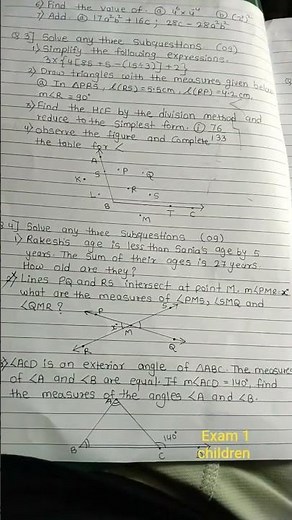 6) Find the value of
7) Add. ⓐ 17a²b² + 16c ; 28c - 28a²b²
Q.3] Solve any three subquestions (09)
1) Simplify the following expressions.
3x{4[85+5-(15÷3)]+2}
2) Draw triangles with the measures given below
ⓐ In ΔPRS, l(RS)=5.5cm, l(RP)=4.2cm,
m∠R = 90°
3) Find the HCF by the division method and
reduce to the simplest form. 76
133
4) observe the figure and complete
the table for ∠
A
P
S
Q
K
R
S
L
B
T
C
M
Q.4] Solve any three subquestions (09)
1) Rakesh's age is less than Sania's age by 5
years. The sum of their ages is 27 years
How old are they?
2) Lines PQ and RS intersect at point M. m∠PMR = x°
what are the measures of ∠PMS, ∠SMQ and
∠QMR?
P
S
x°
M
R
Q
3) ∠ACD is an exterior angle of ΔABC. The measures
of ∠A and ∠B are equal. If m∠ACD = 140°, find
the measures of the angles ∠A and ∠B.
A
140°
B
C
Exam 1
children